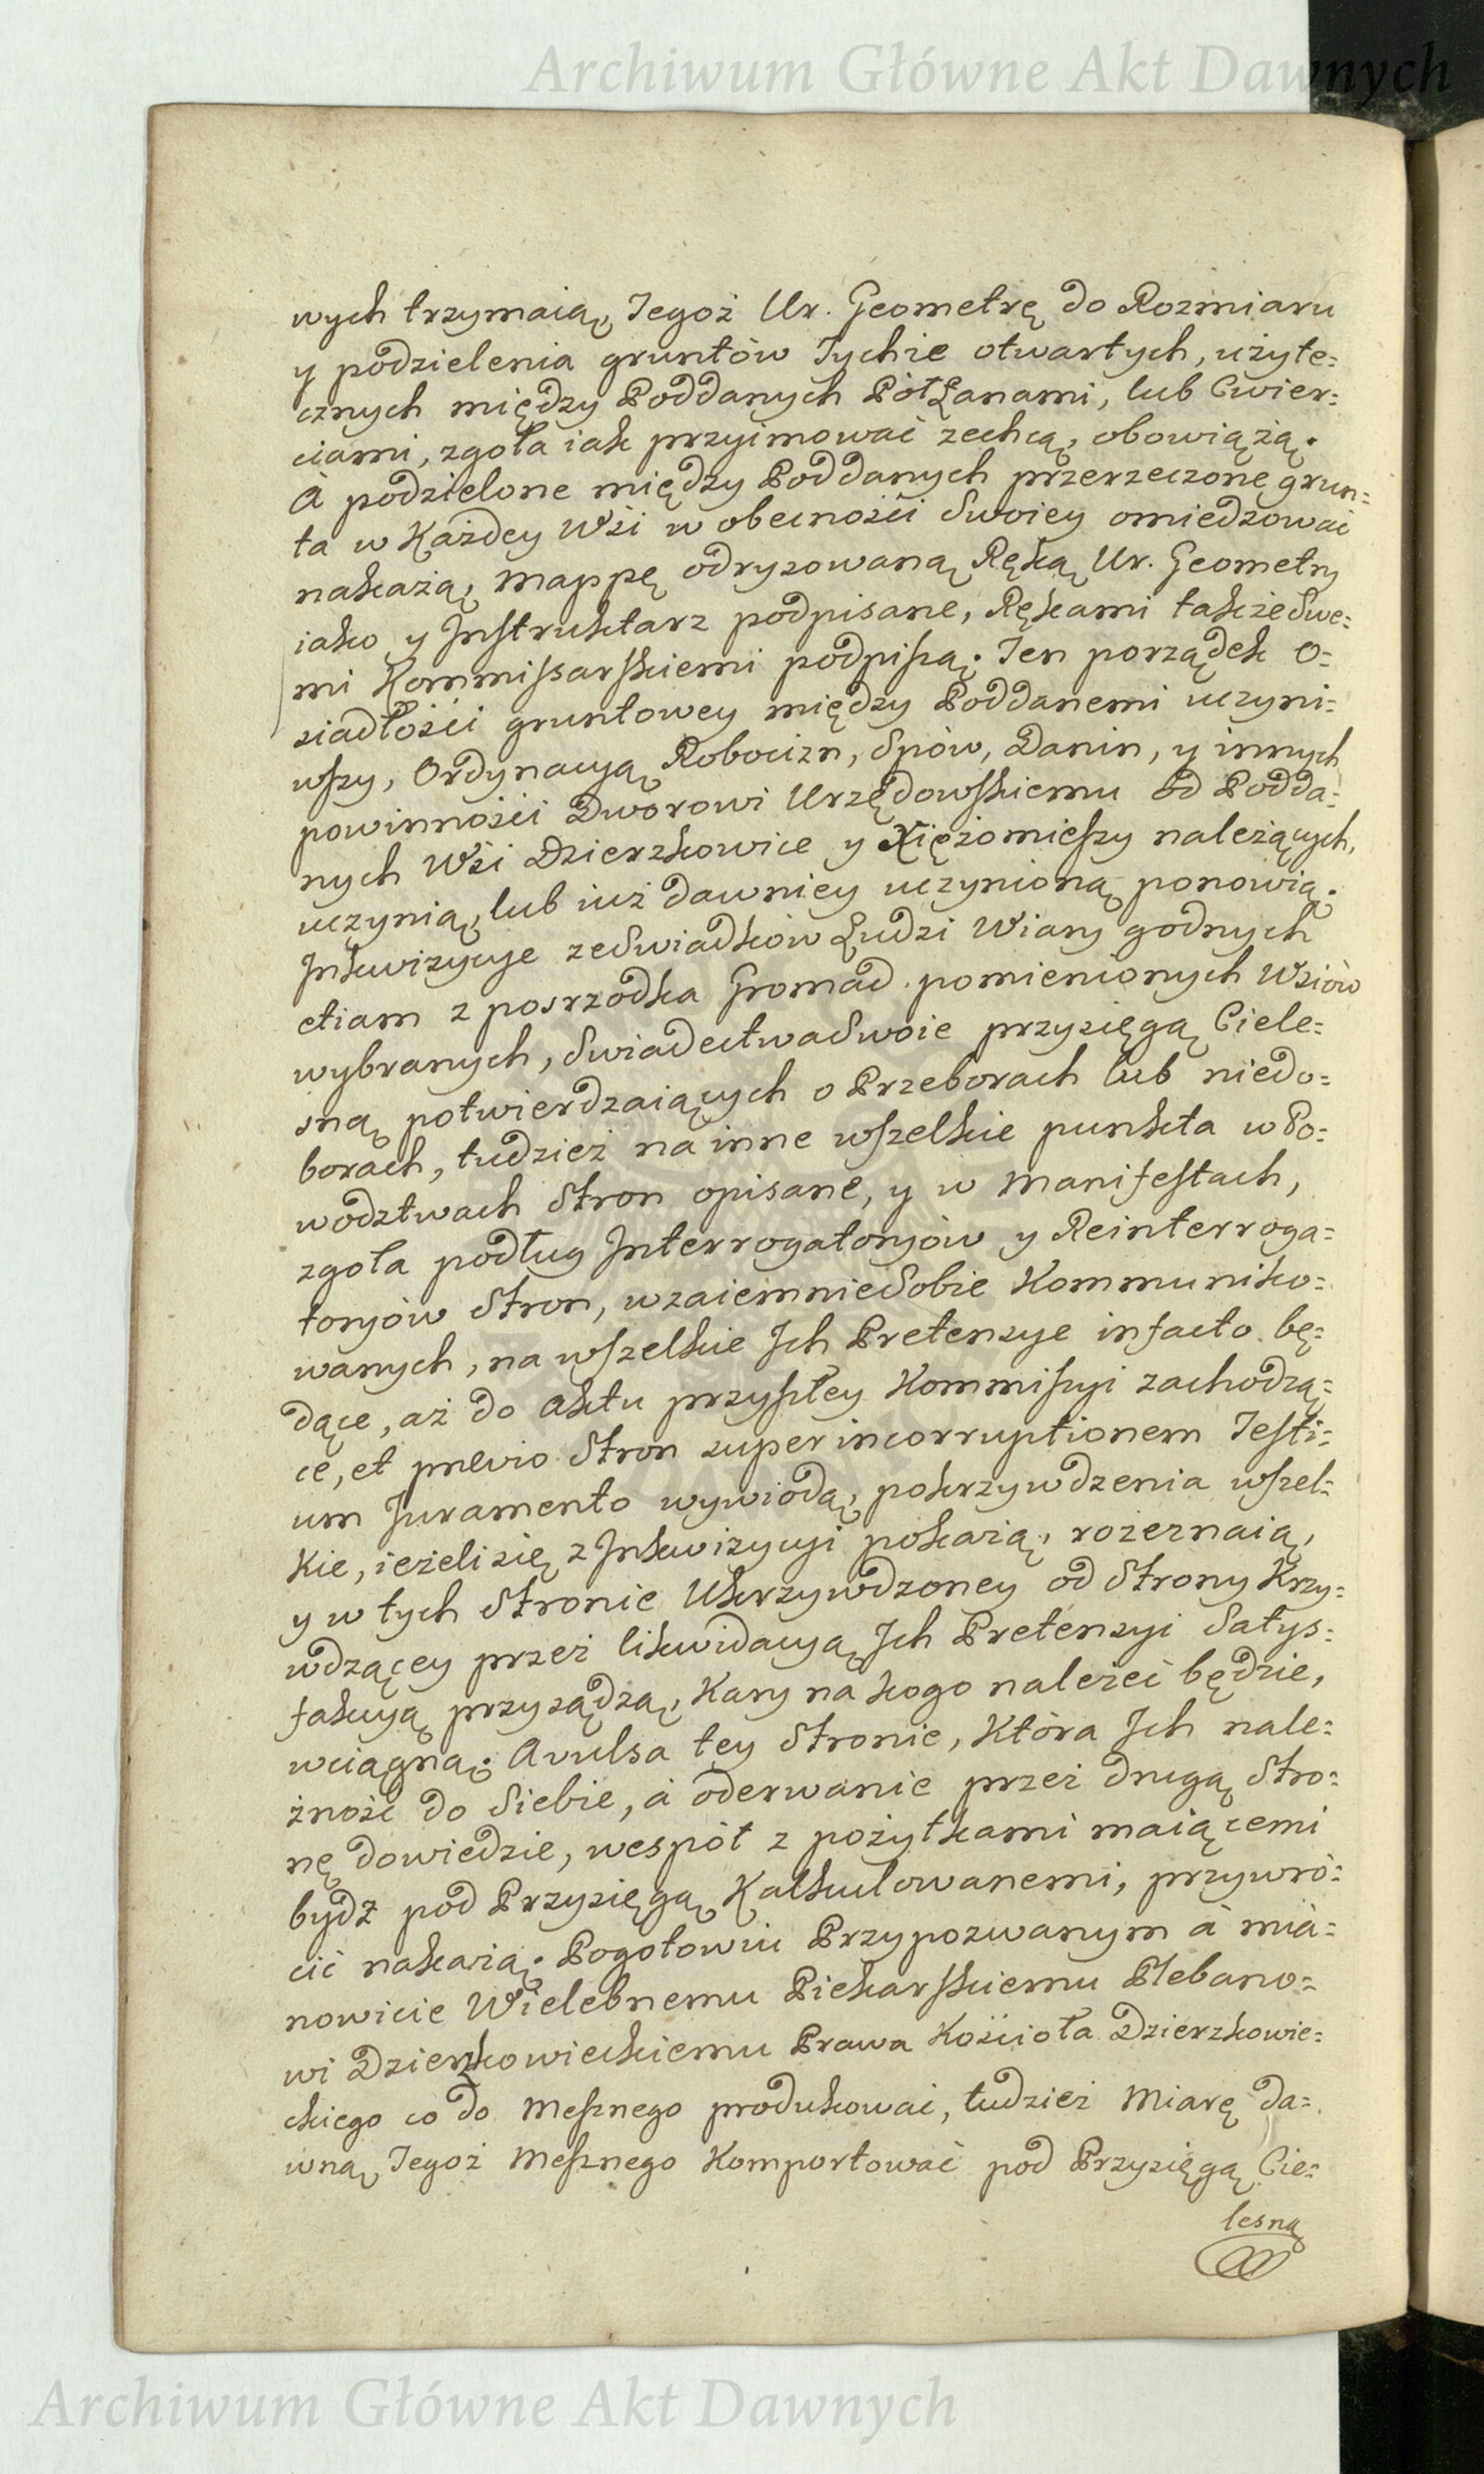 Archiwum Główne Akt Dawnych
wych trzymaią, Tegoż Ur. Geometrę do Rozmiaru
y podzielenia gruntów Tychże otwartych, użyte=
cznych między Poddanych PółŁanami, lub Cwier=
ciami, zgoła iak przyimować zechcą, obowiążą.
A podzielone między Poddanych przerzeczone grun=
ta w Każdey Wśi w obecnośći Swoiey omiedzować
nakażą, Mappę odryzowaną Ręką Ur. Geometry
iako y Instruktarz podpisane, Rękami takżeSwe=
mi Kommissarskiemi podpiszą. Ten porządek O=
siadłośći gruntowey między Poddanemi uczyni=
wszy, Ordynacyą Robocizn, Spów, Danin, y innych
powinnośći Dworowi Urzędowskiemu od Podda=
nych Wśi Dzierzkowice y Xiężomieszy należących,
uczynią, lub iuż dawniey uczynioną ponowią.
Inkwizycye zeSwiadków Ludzi Wiary godnych
etiam z posrzodka Gromad pomienionych Wsiów
wybranych, SwiadectwaSwoie przysięgą Ciele=
sną potwierdzaiących o Przeborach lub niedo=
borach, tudzież na inne wszelkie punkta w Po=
wodztwach Stron opisane, y w Manifestach,
zgoła podług Interrogatoryów y Reinterroga=
toryów Stron, wzaiemnieSobie Kommuniko=
wanych, na wszelkie Ich Pretensye in facto bę=
dące, aż do Aktu przyszłey Kommiszyi zachodzą=
ce, et previo Stron super incorruptionem Testi=
um Juramento wywiodą, pokrzywdzenia wszel=
Kie, ieżeli się z Inkwizycyi pokażą, rozeznaią,
y w tych Stronie Ukrzywdzoney od Strony Krzy=
wdzącey przez likwidacyą Ich Pretensyi Satys=
fakcyą przysądzą, Kary na kogo należeć będzie,
wciągną. Avulsa tey Stronie, Która Ich nale=
żność do Siebie, á oderwanie przez drugą Stro=
nę dowiedzie, wespół z pożytkami maiącemi
bydź pod Przysięgą Kalkulowanemi, przywró=
cić nakażą. Pogotowiu Przypozwanym á mia=
nowicie Wielebnemu Piekarskiemu Plebano=
wi Dzierzkowieckiemu Prawa Kościoła Dzierzkowie=
ckiego co do Mesznego produkować, tudzież Miarę da=
wną Tegoż Mesznego Komportować pod Przysięgą Cie=
lesną
Archiwum Główne Akt Dawnych